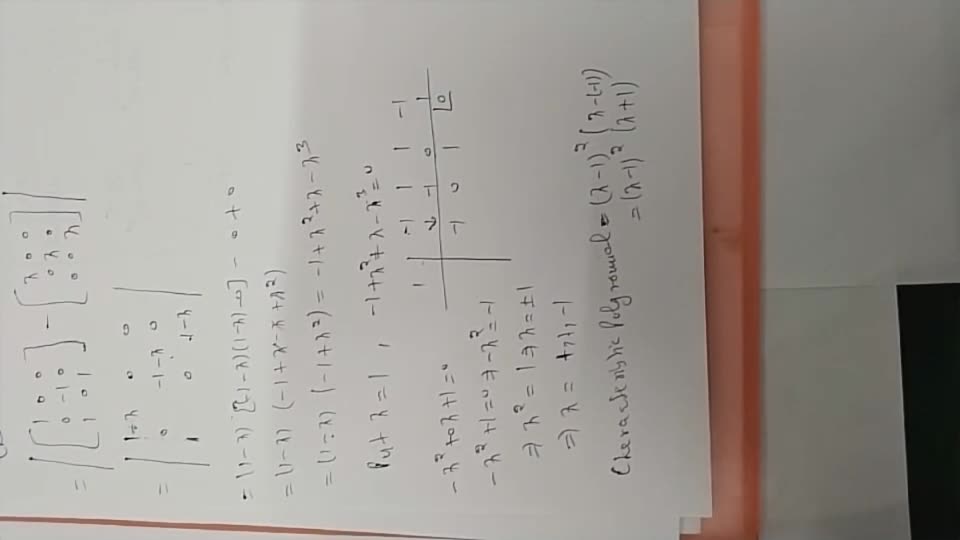 = | [1 0 0
0 -1 0
1 0 1] - [λ 0 0
0 λ 0
0 0 λ] |
= | 1-λ 0 0
0 -1-λ 0
1 0 1-λ |
= (1-λ) [(-1-λ)(1-λ)-0] - 0 + 0
= (1-λ) (-1+λ-λ+λ²)
= (1-λ) (-1+λ²) = -1+λ²+λ-λ³
Put λ=1 , -1+λ²+λ-λ³=0
1 | -1 1 1 -1
↓ -1 0 1
-1 0 1 0
-λ²+0λ+1=0
-λ²+1=0 ⇒ -λ²=-1
⇒ λ²=1 ⇒ λ=±1
⇒ λ = +1,1,-1
Cheracteristic Polynomial = (λ-1)² (λ-(-1))
= (λ-1)² (λ+1)